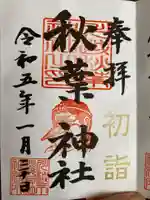 奉拝
初詣
秋葉神社
令和五年一月三日